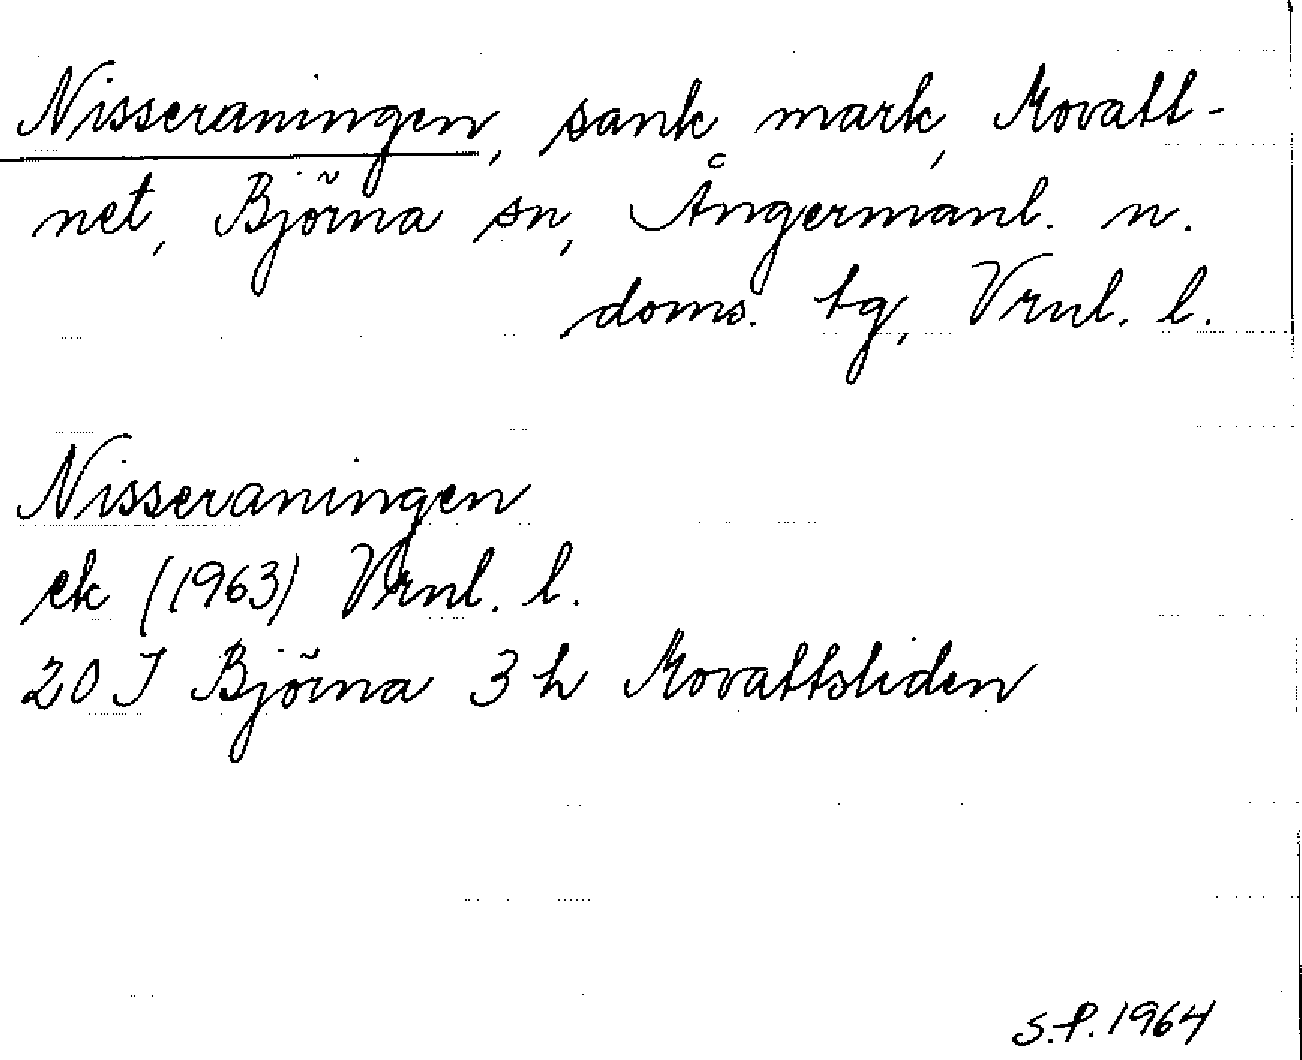 Nisseraningen, sank mark, Movatt-
net, Björna sn, Ångermanl. n.
doms. tg, Vrnl. l.
Nisseraningen
ek (1963) Vrnl. l.
20 J Björna 3 h Movattsliden
S.P. 1964